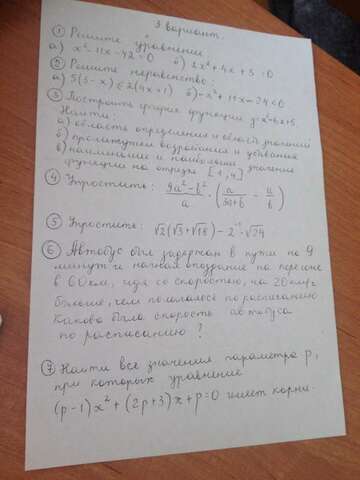 3 вариант.
① Решите уравнение:
а) x² - 11x - 42 = 0 б) 2x² + 4x + 5 = 0
② Решите неравенство:
а) 5(3-x) ≤ 2(4x+1) б) -x² + 11x - 24 < 0
③ Построить график функции y = x² - 6x + 5
Найти:
а) область определения и область значений
б) промежутки возрастания и убывания
в) наименьшее и наибольшее значение
функции на отрезке [1,4]
④ Упростить: (9a² - b²)/a · (a/(3a+b) - a/b)
⑤ Упростить: √2(√3 + √18) - 2⁻¹·√24
⑥ Автобус был задержан в пути на 9
минут и нагнал опоздание на перегоне
в 60 км, идя со скоростью, на 20 км/ч
больше, чем полагалось по расписанию.
Какова была скорость автобуса
по расписанию?
⑦ Найти все значения параметра p,
при которых уравнение
(p-1)x² + (2p+3)x + p = 0 имеет корни.